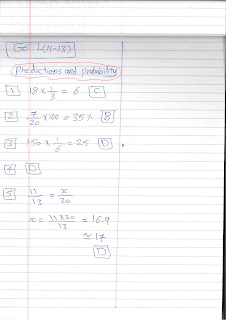 Ex L(11-13)
Predictions and probability
1 18 × 1/3 = 6 C
2 7/20 × 100 = 35% B
3 150 × 1/6 = 25 D
4 D
5 11/13 = x/20
x = 11×20/13 = 16.9
≃ 17
D